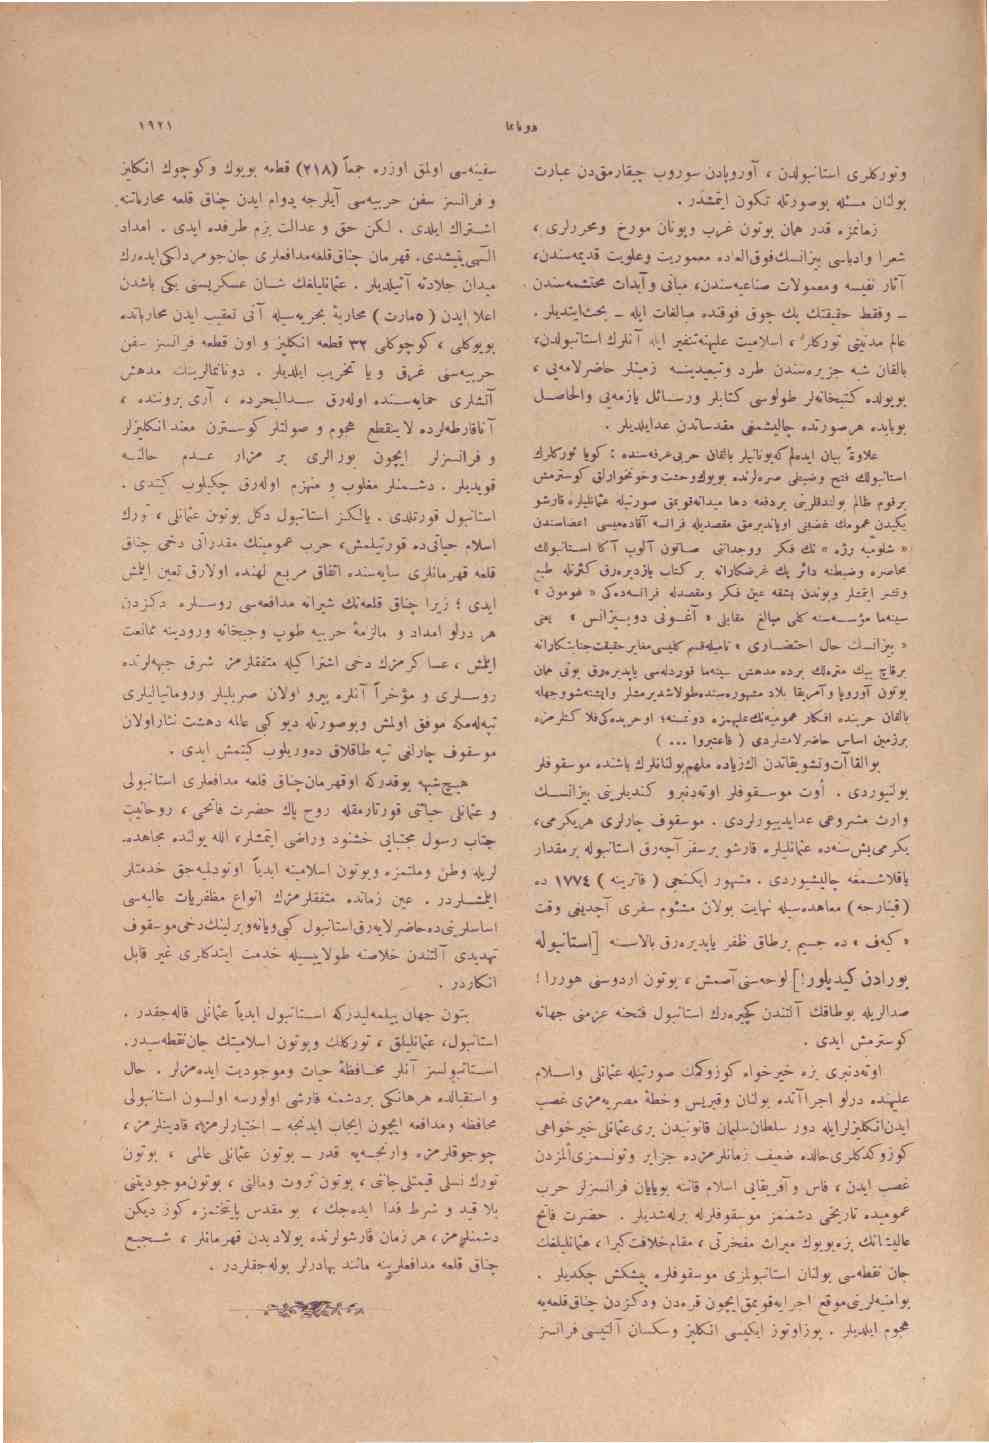 دوننما
١٩٢١
وتوركلرى استانبولدن ، آوروپادن سوروب چيقارمقدن عبارت
بولنان مسئله بوصورتله تكون ايتمشدر .
زمانمزه قدر همان بوتون غرب ويونان مورخ ومحررلرى ،
شعرا وادباسى بيزانسك فوق العاده معموريت وعلويت قديمه‌سندن،
آثار نفيسه ومعمولات صناعيه‌سندن، مبانى وآبدات محتشمه‌سندن
ـ وفقط حقيقتك پك چوق فوقنده مبالغات ايله ـ بحث ايتديلر .
عالم مدنيتى توركلر، اسلاميت عليهنه تنفير ايله آنلرك استانبولدن،
بالقان شبه جزيره‌سندن طرد وتبعيدينه زمينلر حاضرلامه‌يى ،
بويولده كتبخانه‌لر طولوسى كتابلر ورسائل يازمه‌يى والحاصل
بوبابده هرصورتده چاليشمغى مقدساتدن عدايلديلر .
علاوةً بيان ايده‌لم كه يونانيلر بالقان حربى عرفه‌سنده : كويا توركلرك
استانبولك فتح وضبطى صره‌لرنده بويوك وحشت وخونخوارلق كوسترمش
برقوم ظالم بولندقلرينى بردفعه دها ميدانه قويمق صورتيله عثمانليلره قارشو
يكيدن عمومك غضبنى اوياندیرمق مقصديله فرانسه آقاده‌ميسى اعضاسندن
« شلومبه رژه » نك فكر ووجداننى صاتون آلوب آكا استانبولك
محاصره وضبطنه دائر پك غرضكارانه بر كتاب يازديره‌رق كثرتله طبع
ونشر ايتمشلر وبوندن بشقه عين فكر ومقصدله فرانسه‌ده‌كى « غومون »
سينه‌ما مؤسسه‌سنه كلى مبالغ مقابلى « آغونى دوبيزانس » يعنى
« بيزانسك حال احتضارى » ناميله قسم كليسى مغاير حقيقت جنايتكارانه
برقاچ بيك متره‌لك برده مدهش سينه‌ما قورده‌له‌سى ياپديره‌رق بونى همان
بوتون آوروپا وآمريقا بلاد مشهوره‌سنده طولاشديرمشلر وايشته شووجهله
بالقان حربنده افكار عموميه‌نك عليهمزه دونمسنه؛ اوحربده‌كى فلاكتلرمزه
برزمين اساس حاضرلامشلردى ( فاعتبروا ... )
بوالقاآت وتشويقاتدن اك زياده ملهم بولنانلرك باشنده موسقوفلر
بولنيوردى . أوت موسقوفلر اوته‌دنبرو كنديلرينى بيزانسك
وارث مشروعى عدايدييورلردى . موسقوف چارلرى هريكرمى،
يكرمى بش سنه‌ده عثمانليلره قارشو برسفر آچه‌رق استانبوله برمقدار
ياقلاشمغه چاليشيوردى . مشهور ايكنجى ( قاترينه ) ١٧٧٤ ده
( قينارجه ) معاهده‌سيله نهايت بولان مشئوم سفرى آچديغى وقت
« كيه‌ف » ده جسيم برطاق ظفر ياپديره‌رق بالاسنه [استانبوله
بورادن كيديلور!] لوحه‌سنى آصمش ، بوتون اردوسنى هوررا !
صدالريله بوطاقك آلتندن كچيره‌رك استانبول فتحنه عزمنى جهانه
كوسترمش ايدى .
اوته‌دنبرى بزه خيرخواه كوزوكمك صورتيله عثمانلى واسلام
عليهنده درلو اجراآتده بولنان وقبريس وخطهٔ مصريه‌مزى غصب
ايدن انكليزلرايله دور سلطان سليمان قانونيدن برى عثمانلى خيرخواهى
كوزوكدكلرى حالده ضعيف زمانلرمزده جزاير وتونسمزى المزدن
غصب ايدن ، فاس وآفريقايى اسلام قاننه بويايان فرانسزلر حرب
عموميده تاريخى دشمنمز موسقوفلرله برله‌شديلر . حضرت فاتح
عاليشانك بزه بويوك ميراث مفخرتى ، مقام خلافت كبرا ، عثمانليلغك
جان نقطه‌سى بولنان استانبولمزى موسقوفلره پيشكش چكديلر .
بوامنيه‌لرينى موقع اجرايه قويمق ايچون قره‌دن ودكزدن چناق قلعه‌يه
هجوم ايلديلر . يوزاوتوز ايكيسى انكليز وسكسان آلتيسى فرانسز
سفينه‌سى اولمق اوزره جمعاً (٢١٨) قطعه بويوك وكوچوك انكليز
و فرانسز سفن حربيه‌سى آيلرجه دوام ايدن چناق قلعه محارباتنه
اشتراك ايلدى . لكن حق و عدالت بزم طرفده ايدى . امداد
الٓهى يتيشدى. قهرمان چناق قلعه مدافعلرى جان جومردلكى ايده‌رك
ميدان جلادته آتيلديلر . عثمانليلغك شان عسكريسنى يكى باشدن
اعلا ايدن ( ٥ مارت ) محاربهٔ بحريه‌سيله آنى تعقيب ايدن محارباتده
بويوكلى ، كوچوكلى ٣٢ قطعه انكليز و اون قطعه فرانسز سفن
حربيه‌سنى غرق و يا تخريب ايلديلر . دونانمالرينك مدهش
آتشلرى حمايه‌سنده اوله‌رق سدالبحرده ، آرى بروننده ،
آنافارطه‌لرده لاينقطع هجوم و صولتلر كوسترن معند انكليزلر
و فرانسزلر ايچون بورالرى بر مزار عدم حالنه
قويديلر . دشمنلر مغلوب و منهزم اوله‌رق چكيلوب كيتدى .
استانبول قورتلدى . يالكز استانبول دكل بوتون عثمانلى ، تورك
اسلام حياتى ده قورتيلمش، حرب عمومينك مقدراتى دخى چناق
قلعه قهرمانلرى سايه‌سنده اتفاق مربع لهنده اولارق تعين ايتمش
ايدى ؛ زيرا چناق قلعه‌نك شيرانه مدافعه‌سى روسلره دكزدن
هر درلو امداد و مالزمهٔ حربيه طوپ وجبخانه ورودينه ممانعت
ايتمش ، عساكرمزك دخى اشتراكيله متفقلرمز شرق جبهه‌لرنده
روسلرى و مؤخراً آنلره پيرو اولان صربليلر ورومانياليلرى
تپه‌له‌مكه موفق اولمش وبوصورتله ديو كبى عالمه دهشت نثاراولان
موسقوف چارلغى تپه طاقلاق ده‌وريلوب كيتمش ايدى .
هيچ شبهه يوقدركه اوقهرمان چناق قلعه مدافعلرى استانبولى
و عثمانلى حياتنى قورتارمقله روح پاك حضرت فاتحى ، روحانيت
جناب رسول مجتبايى خشنود وراضى ايتمشلر، الله يولنده مجاهده‌
لريله وطن وملتمزه وبوتون اسلاميته ابدياً اونوديلميه‌جق خدمتلر
ايتمشلردر . عين زمانده متفقلرمزك انواع مظفريات عاليه‌سى
اساسلرينى ده حاضرلايه‌رق استانبول كبى ويانه وبرلينك دخى موسقوف
تهديدى آلتندن خلاصنه طولاييسيله خدمت ايتدكلرى غير قابل
انكاردر .
بتون جهان بيلمه‌ليدركه استانبول ابدياً عثمانلى قاله‌جقدر .
استانبول، عثمانليلق ، توركلك وبوتون اسلاميتك جان نقطه‌سيدر.
استانبولسز آنلر محافظهٔ حيات وموجوديت ايده‌مزلر . حال
و استقبالده هرهانكى بردشمنه قارشى اولورسه اولسون استانبولى
محافظه ومدافعه ايچون ايجاب ايدنجه ـ اختيارلرمزه، قادينلرمزه ،
چوجوقلرمزه وارنجيه قدر ـ بوتون عثمانلى عالمى ، بوتون
تورك نسلى قيمتلى جاننى ، بوتون ثروت ومالنى ، بوتون موجوديتنى
بلا قيد و شرط فدا ايده‌جك ، بو مقدس پايتختمزه كوز ديكن
دشمنلرمز ، هر زمان قارشولرنده پولاديدن قهرمانلر ، شجيع
چناق قلعه مدافعلرينه مانند بهادرلر بوله‌جقلردر .